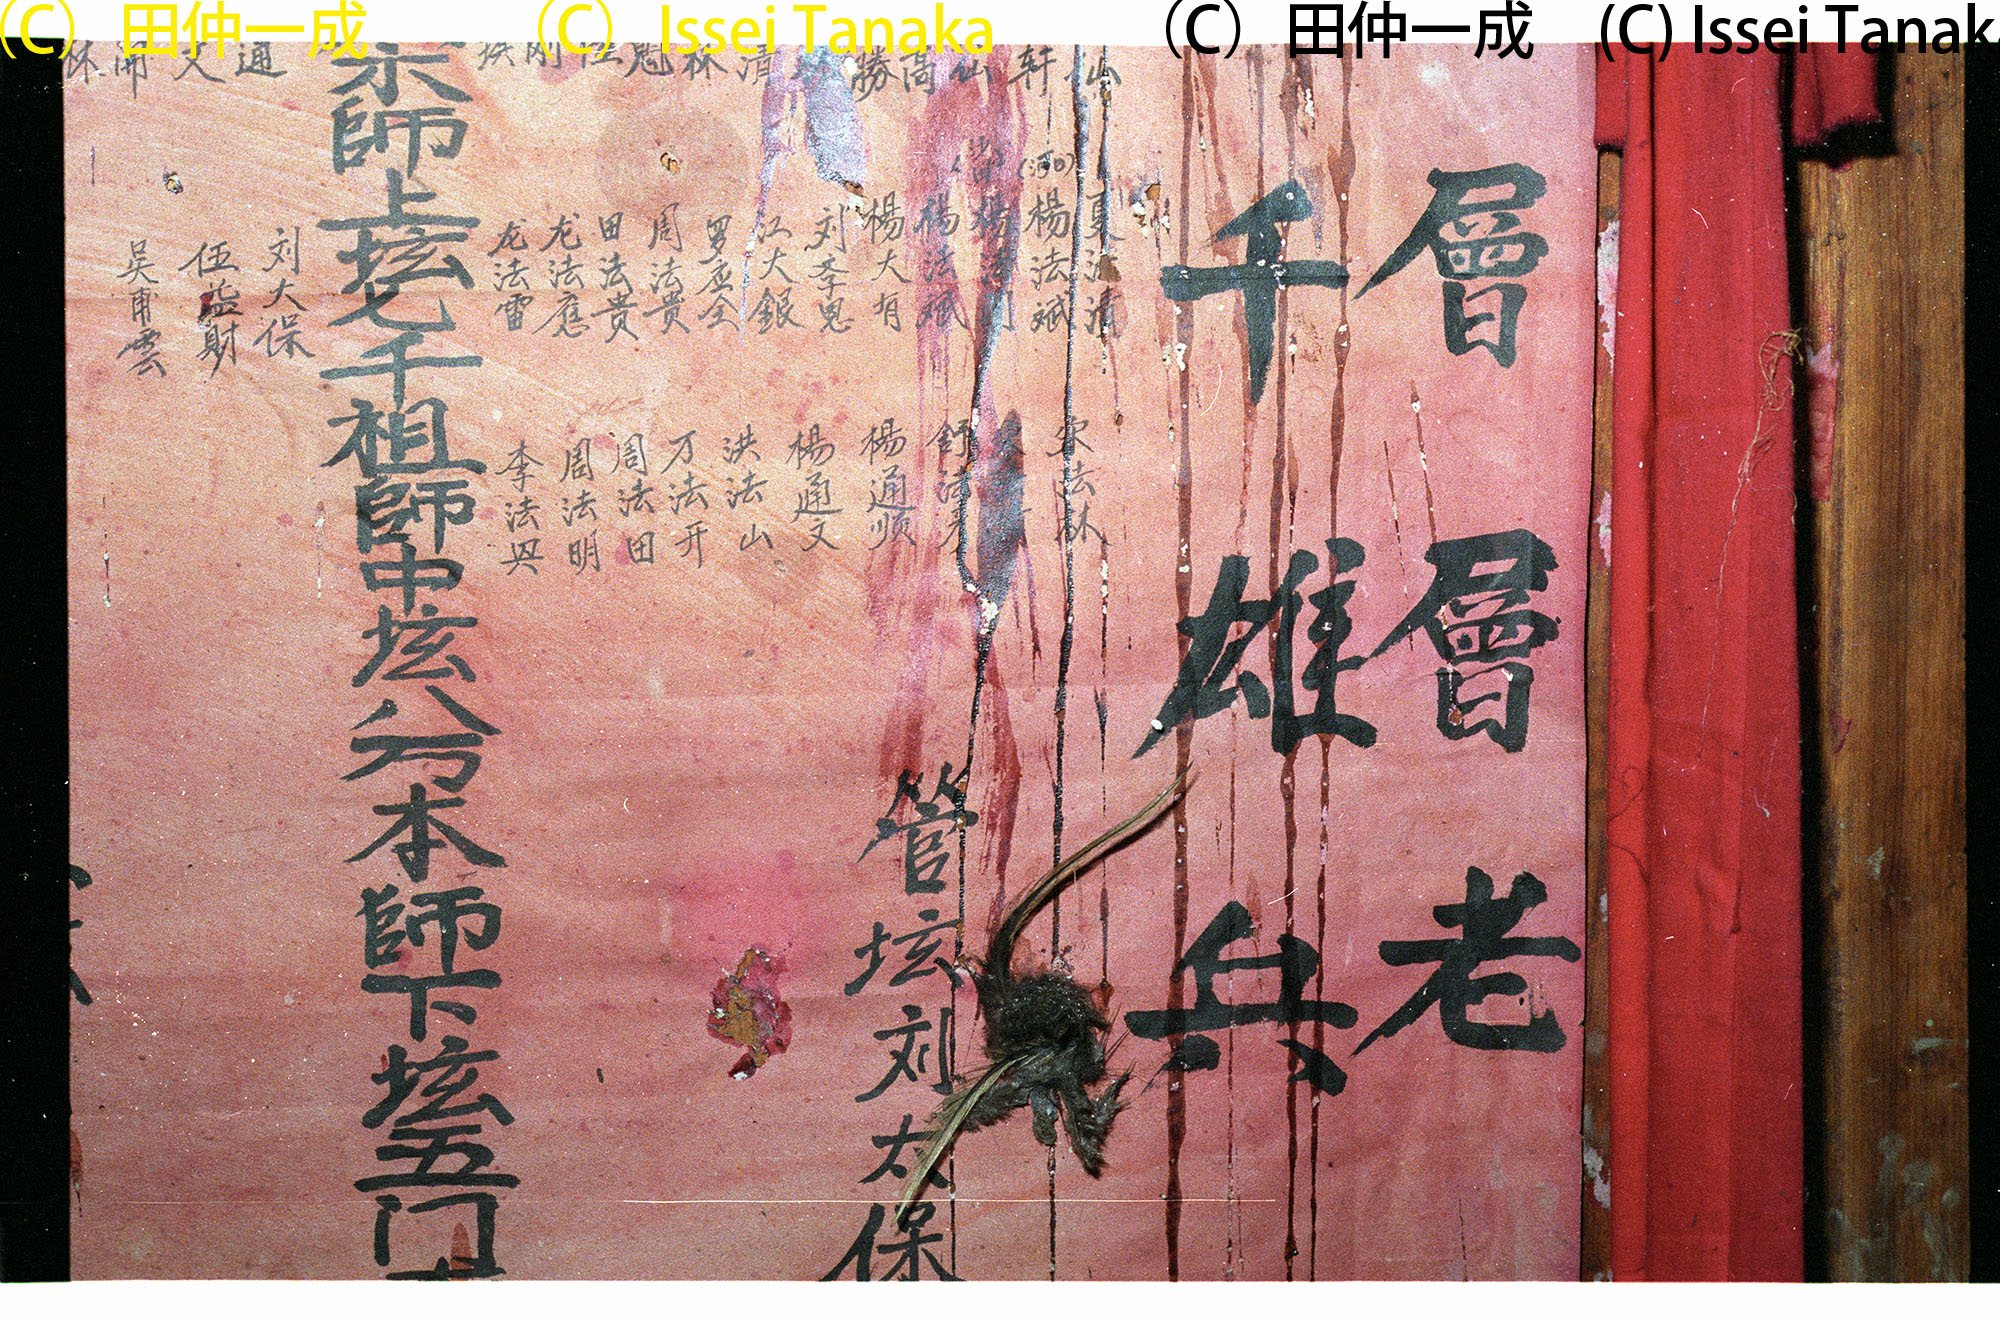 (C) 田仲一成 (C) Issei Tanaka (C) 田仲一成 (C) Issei Tanak
層層老
千雄兵
夏法清
楊法斌
楊法
楊法斌
楊大有
刘季恩
江大銀
罗应全
周法贵
田法贵
龙法應
龙法雷
宋法林
舒法
楊通顺
楊通文
洪法山
万法开
周法田
周法明
李法興
管坛刘大保
師上坛七千祖師中坛八万本師下坛五门
刘大保
伍益財
吴甫雲